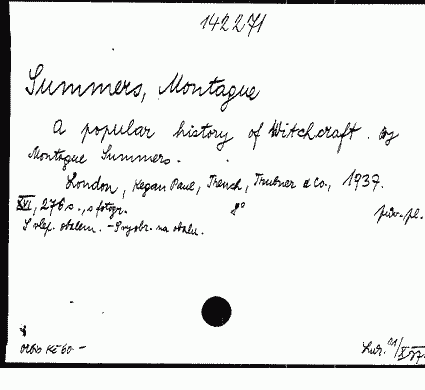 142271
Summers, Montague
A popular history of Witchcraft. By
Montague Summers.
London, Kegan Paul, Trench, Trubner & Co., 1937.
XVI, 276 s., s fotogr. 8°
pův. pl.
S vlep. obalem. - S vyobr. na obalu.